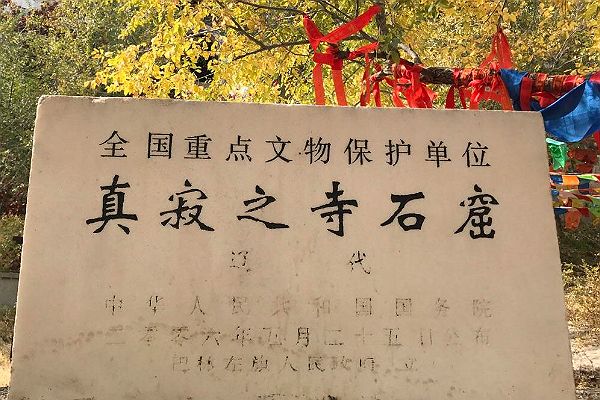 全国重点文物保护单位
真寂之寺石窟
辽代
中华人民共和国国务院
二零零六年五月二十五日公布
巴林左旗人民政府立